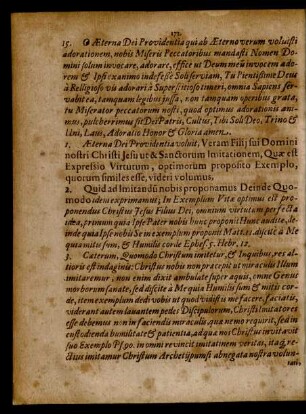 172.
15. O Æterna Dei Providentia qui ab Æterno verum voluisti
adorationem, nobis Miseris Peccatoribus mandasti Nomen Do-
mini solum invocare, adorare, effice ut Deum meũ invocem ado-
rem & Ipsi ex animo indefesse Subserviam, Tu Pientissime Deus
à Religioso viæ adorari à Superstitioso timeri, omnia Sapiens ser-
vabit ea, tamquam legibus justa, non tamquam operulis grata,
tu Miserator peccatorum nosti, quod optimus adorationis ani-
mus, pulcherrimus sit Dei Patris, Cultus, Tibi Soli Deo, Trino &
Uni, Laus, Adoratio Honor & Gloria amen.
1. Æterna Dei Providentia voluit, Veram Filij sui Domini
nostri Christi Jesu ut & Sanctorum Imitationem, Quæ est
Expressio Virtutum, optimorum proposito Exemplo,
quorum similes esse, videri volumus,
2. Quid ad Imitandũ nobis proponamus Deinde Quo-
modo idem exprimamus; In Exemplum Vitæ optimus est pro-
ponendus Christus Jesus Filius Dei, omnium virtutum perfecta
idea, primum quia Ipse Pater nobis hunc proponit Hunc audite, de-
inde quia Ipse nobis Se exemplum proponit Matt. 11. discite à Me
quia mitis sum, & Humilis corde Ephes. 5. Hebr. 12.
3. Caterum, Quomodo Christum imitetur, & Inquibus, res al-
tioris est indaginis: Christus nobis non præcepit ut miraculis Illum
imitaremur, non enim dixit ambulate super aquas, omne Genus
morborum sanate, sed discite à Me quia Humilis sum & mitis cor-
de, item exemplum dedi vobis ut quod vidistis me facere, faciatis,
viderant autem lavantem pedes Discipulorum, Christi Imitatores
esse debemus non in faciendis miraculis quæ nemo requirit, sed in
custodienda humilitate & patientia, ad quæ nos Christus invitavit
suo Exemplo Ps. 90. in omni re vincit imitationem veritas, itaq; re-
ctius imitamur Christum Archetÿpum si abnegata nostra volun-
tati,